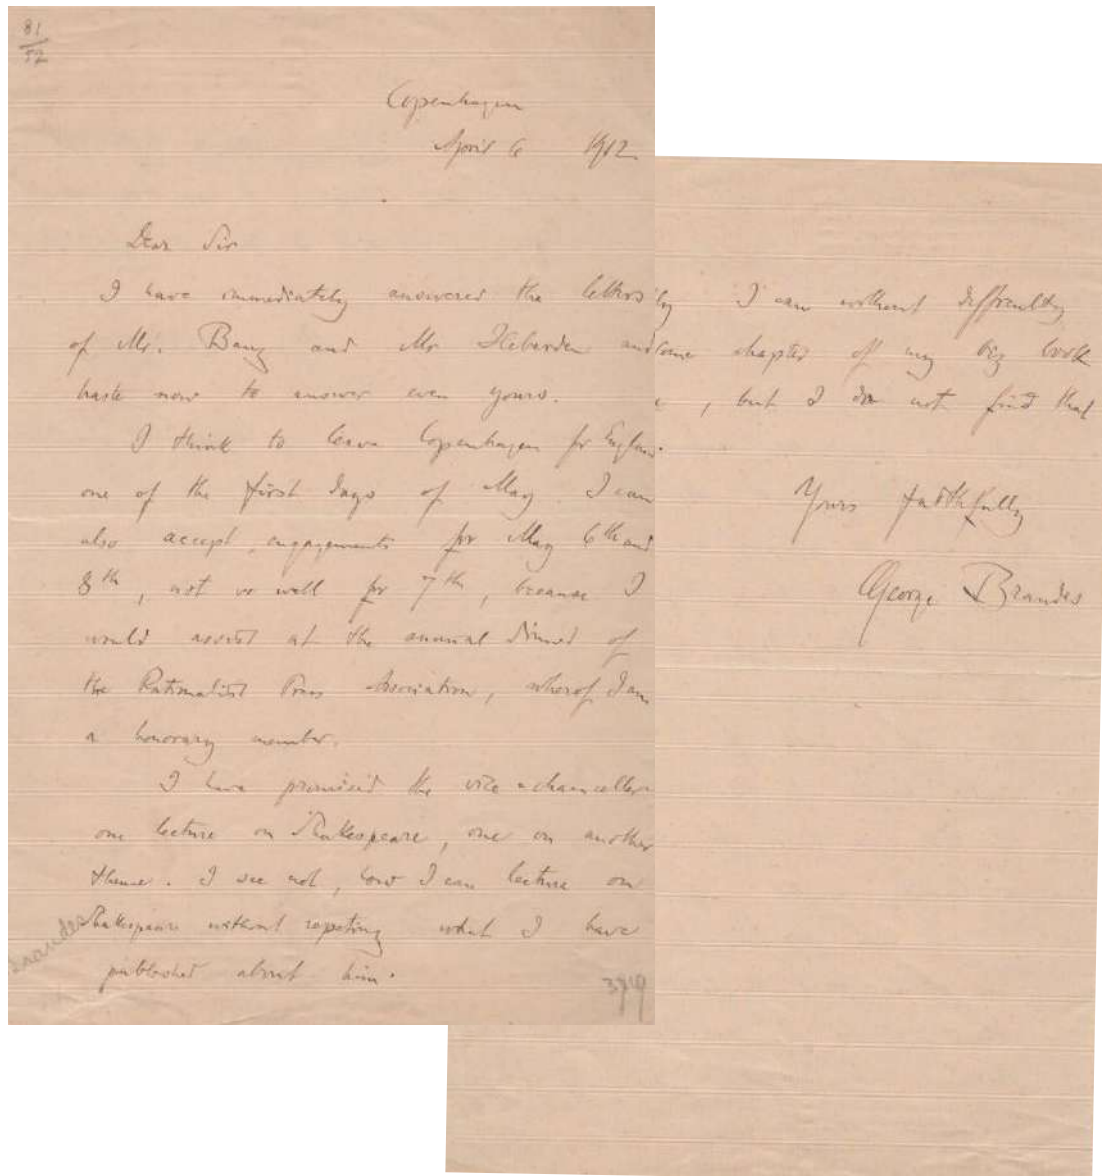 81
57
Copenhagen
April 6 1912
Dear Sir
I have immediately answered the letters
of Mr. Bang and Mr and
haste now to answer even yours.
I think to leave Copenhagen for England
one of the first days of May. I can
also accept engagements for May 6th and
8th, not so well for 7th, because I
would assist at the annual dinner of
the Rationalist Press Association, whereof I am
a honorary member.
I have promised the vice-chancellor
one lecture on Shakespeare, one on another
theme. I see not, how I can lecture on
Shakespeare without repeating what I have
published about him.
Brandes
3919
I can without difficulty
some chapter of my big book
, but I do not find that
Yours faithfully
George Brandes